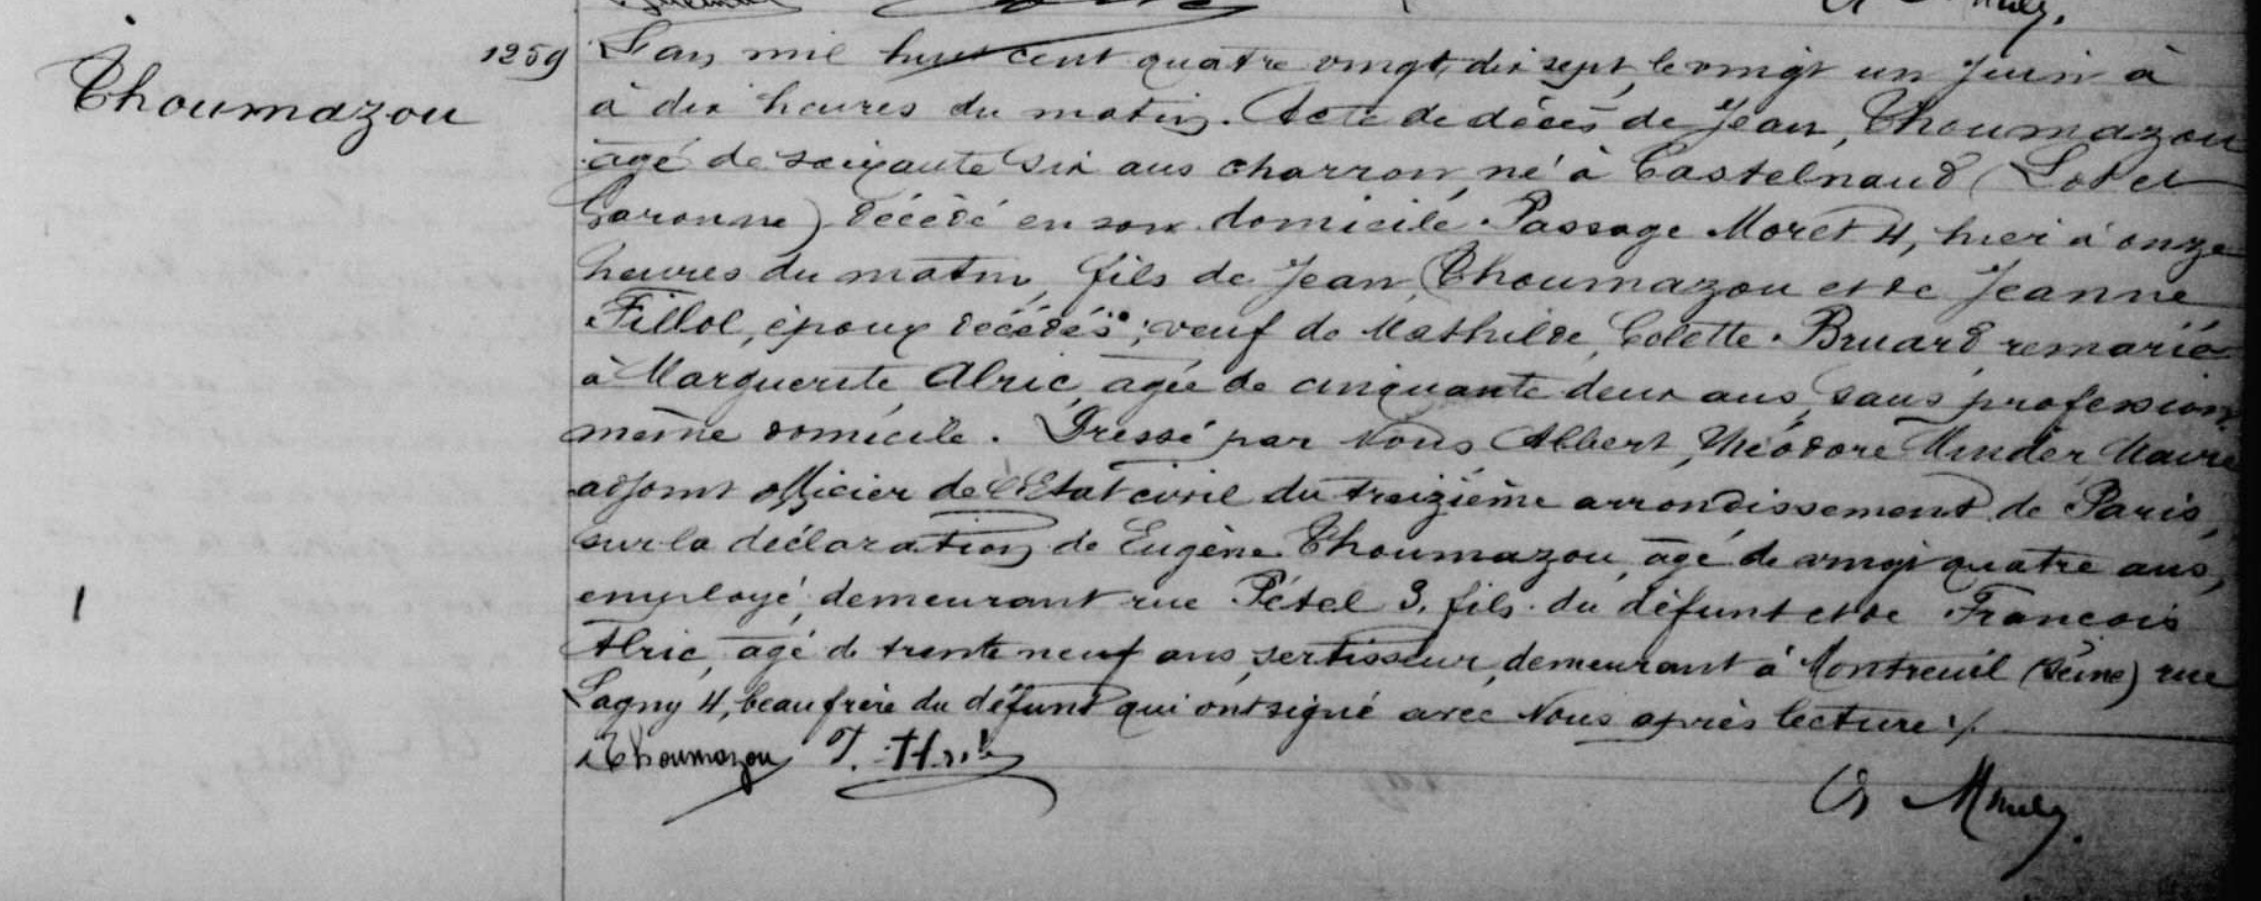 Choumazou
1259
L'an mil huit cent quatre vingt dix sept, le vingt un Juin à
à dix heures du matin. Acte de décès de Jean, Choumazou
âgé de soixante six ans charron, né à Castelnaud (Lot et
Garonne) décédé en son domicile Passage Moret 4, hier à onze
heures du matin, fils de Jean, Choumazou et de Jeanne
Fillol, époux décédés; veuf de Mathilde, Colette Bruard remarié
à Marguerite Alric, agée de cinquante deux ans, sans profession
même domicile. Dressé par Nous Albert, Théodore Minder Maire
adjoint officier de l'Etat civil du treizième arrondissement de Paris,
sur la déclaration de Eugène Choumazou, agé de vingt quatre ans,
employé, demeurant rue Pétel 3, fils du défunt et de François
Alric, agé de trente neuf ans, sertisseur, demeurant à Montreuil (Seine) rue
Lagny 4, beau frère du défunt qui ont signé avec Nous après lecture ./.
Choumazou